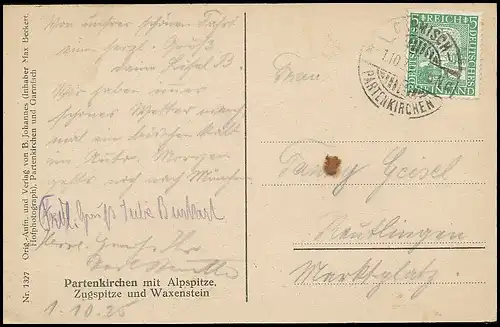 Von unserer schönen Fahrt
eine herzl. Grüß
deine Liesel B.
Wir haben einen
schönes Wetter manch
mal ein bisschen kalt
im Auto. Morgen
gehts noch nach München
Frdl. Gruß Julie Burkart
Herzl. Gruß Ihr
Partenkirchen mit Alpspitze,
Zugspitze und Waxenstein
1. 10. 25
Nr. 1327 Orig.-Aufn. und Verlag von B. Johannes (Inhaber Max Beckert,
Hofphotograph), Partenkirchen und Garmisch
5 DEUTSCHES REICH 5
GARMISCH
1.10.
PARTENKIRCHEN
Frau
Fanny Geisel
Reutlingen
Marktplatz.